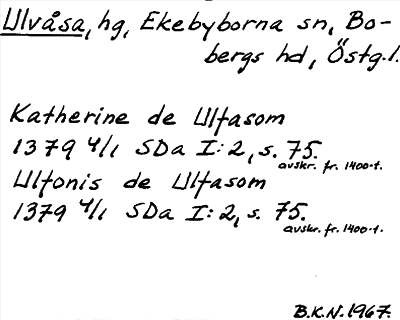 Ulvåsa, hg, Ekebyborna sn, Bo-
bergs hd, Östg.l.
Katherine de Ulfasom
1379 4/1 SDa I:2, s. 75.
avskr. fr. 1400-t.
Ulfonis de Ulfasom
1379 4/1 SDa I:2, s. 75.
avskr. fr. 1400-t.
B.K.N. 1967.